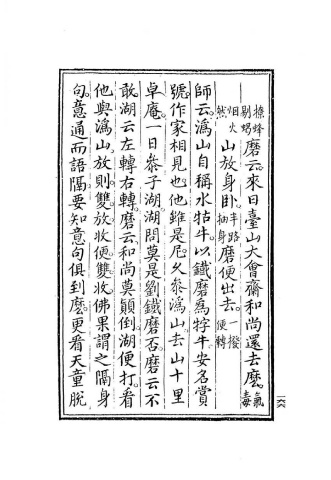 撩蜂剔蝎磨云。來日臺山大會齋和尚還去麼。氣毒
烟火然山放身臥。半路抽身磨便出去。一撥便轉
師云。溈山自稱水牯牛。以鐵磨為牸牛。安名賞
號。作家相見也。他雖是尼。久叅溈山。去山十里
卓庵。一日叅子湖。湖問莫是劉鐵磨否。磨云不
敢。湖云左轉右轉。磨云。和尚莫顛倒。湖便打。看
他與溈山放則雙放。收便雙收。佛果謂之隔身
句。意通而語隔。要知意句俱到麼。更看天童脫
一六六